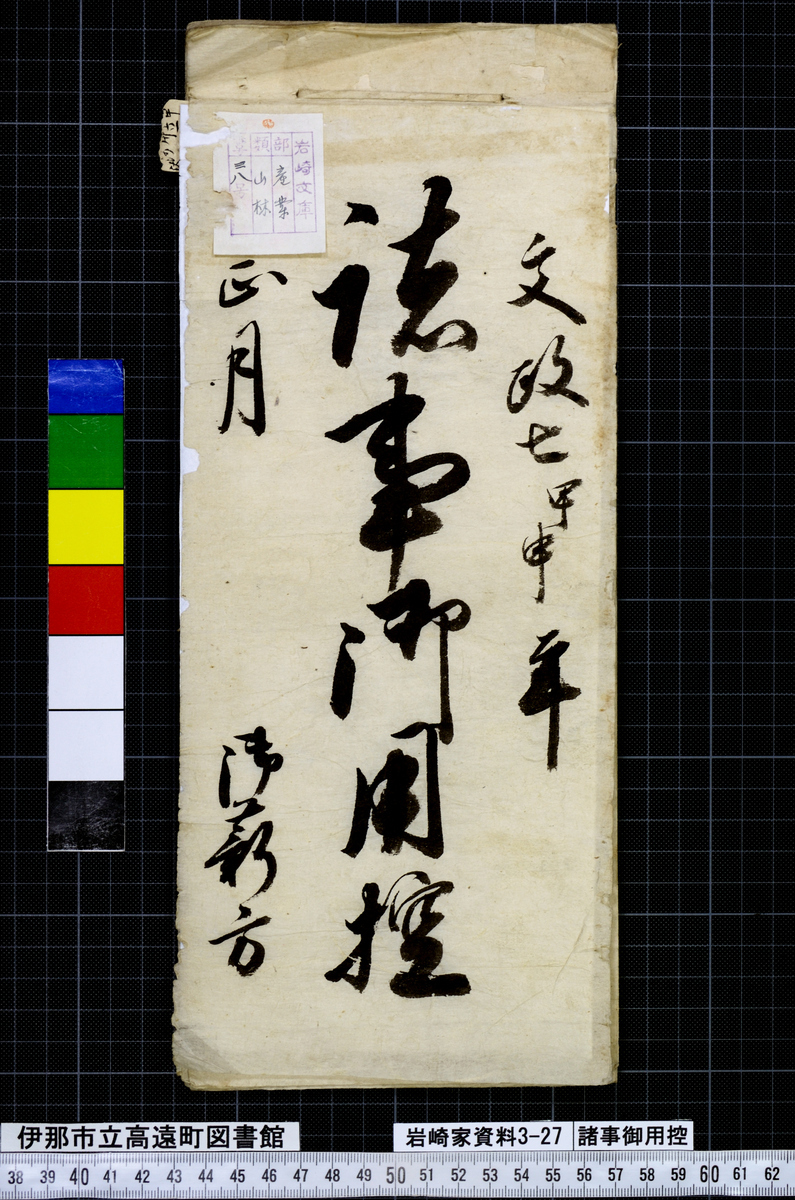 文政七甲申年
諸事御用控
正月
御薪方
岩崎文庫
部 産業
類 山林
三八号
伊那市立高遠町図書館
岩崎家資料3-27
諸事御用控
38 39 40 41 42 43 44 45 46 47 48 49 50 51 52 53 54 55 56 57 58 59 60 61 62